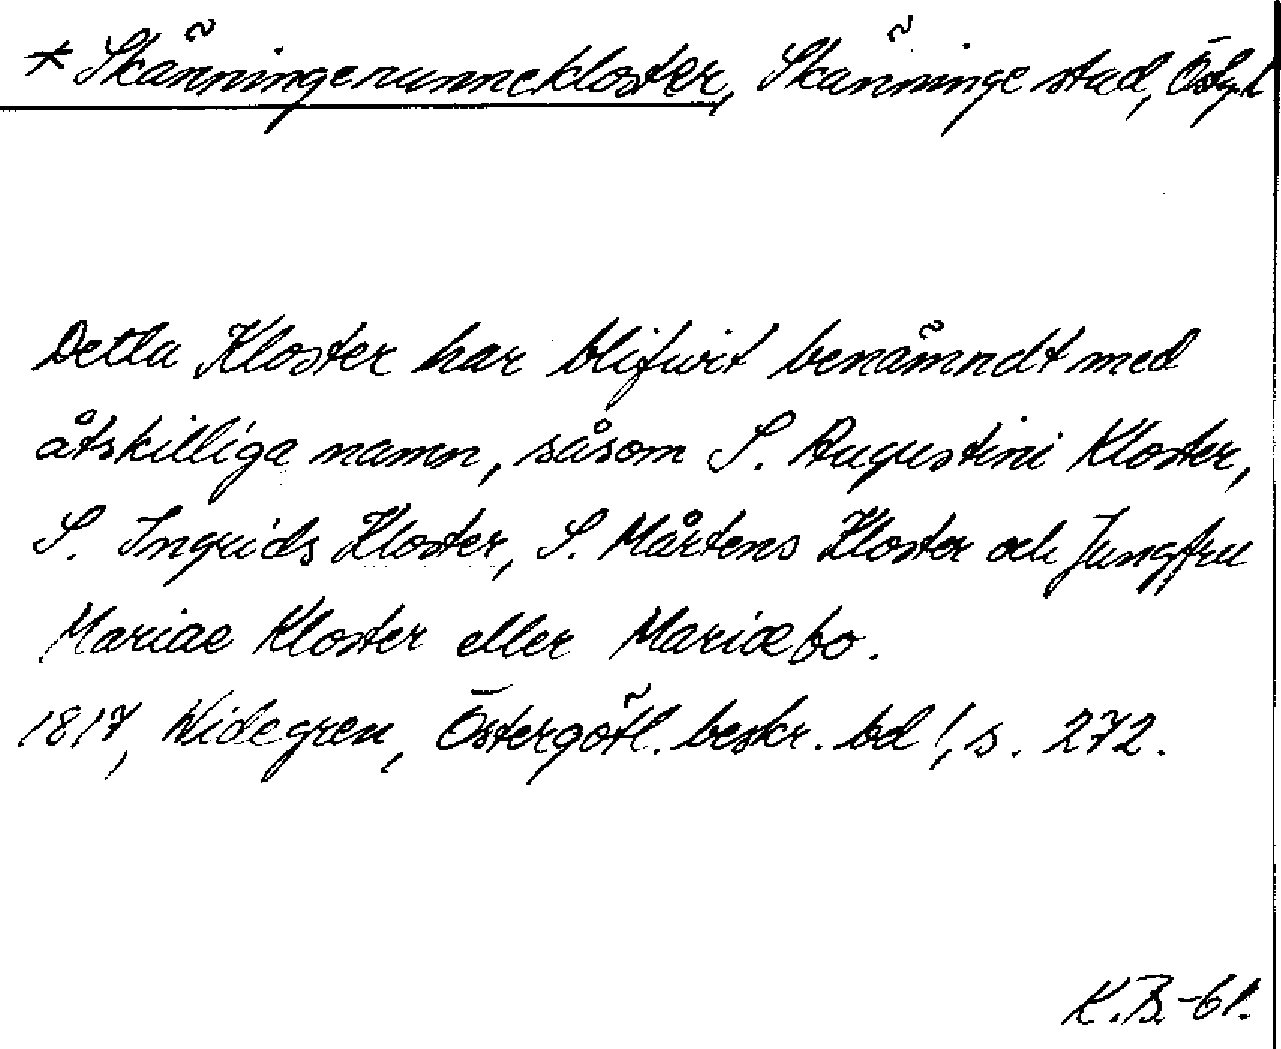 * Skänningenunnekloster, Skänninge stad, Östgl
Detta Kloster har blifwit benämndt med
åtskilliga namn, såsom S. Augustini Kloster,
S. Ingrids Kloster, S. Mårtens Kloster och Jungfru
Mariae Kloster eller Mariæbo.
1817, Widegren, Östergötl. beskr. bd 1, s. 272.
K.B.-61.